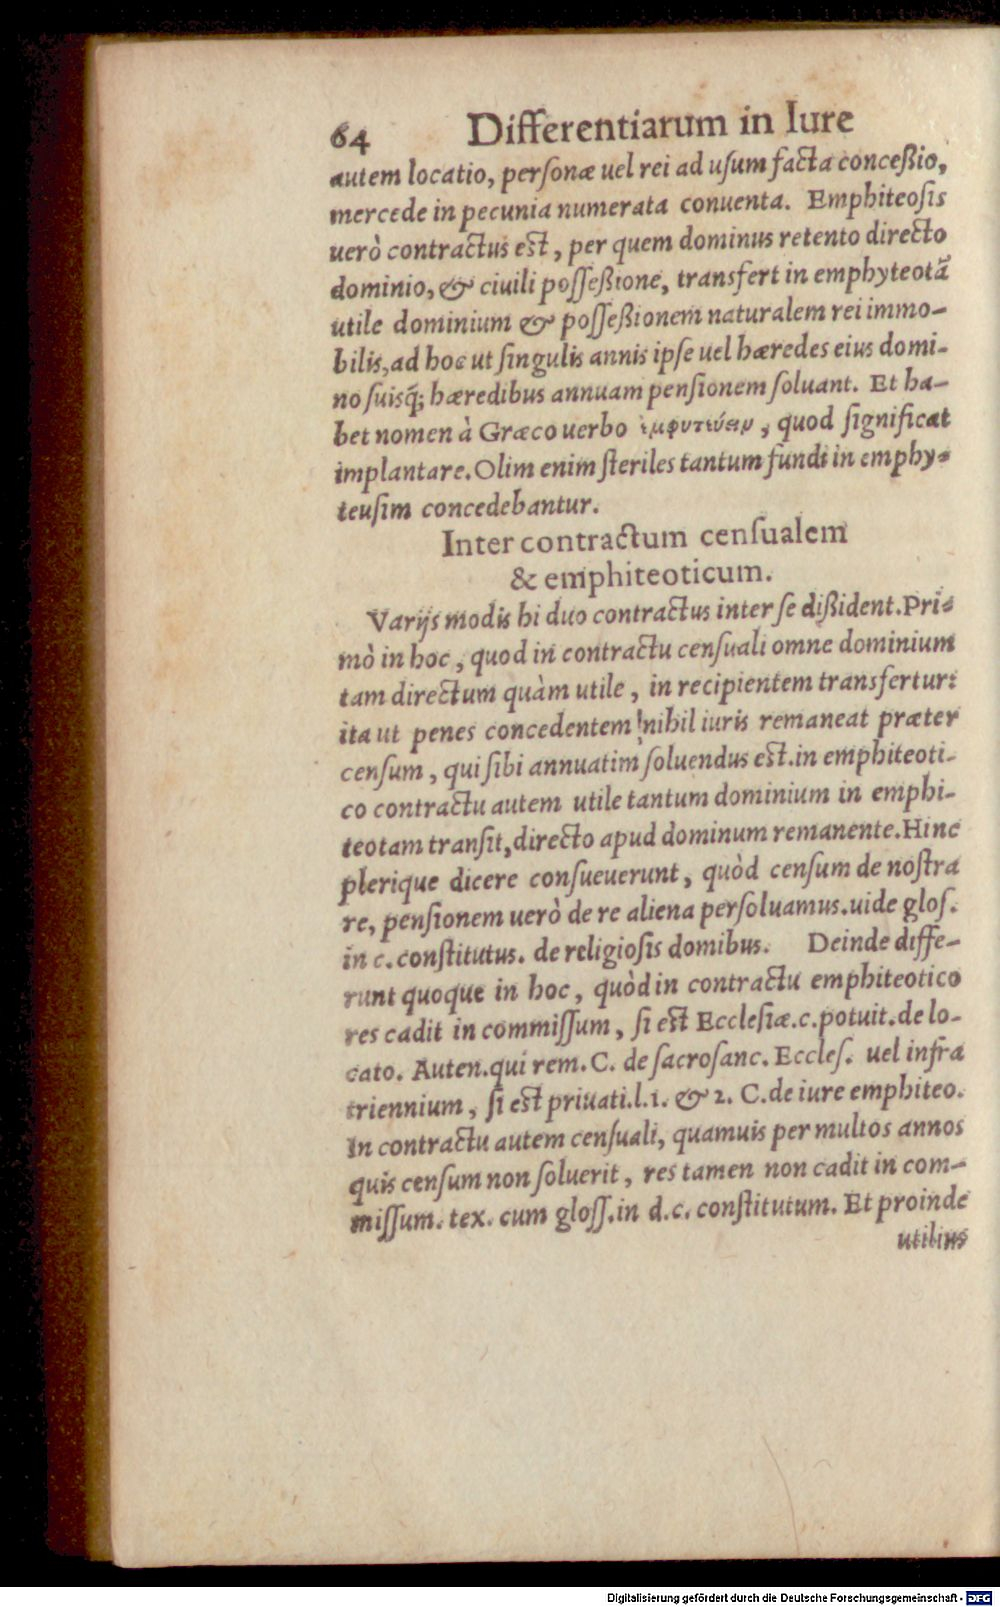 64 Differentiarum in Iure
autem locatio, personæ uel rei ad usum facta conceßio,
mercede in pecunia numerata conuenta. Emphiteosis
uerò contractus est, per quem dominus retento directo
dominio, & ciuili possessione, transfert in emphyteotã
utile dominium & possessionem naturalem rei immo-
bilis, ad hoc ut singulis annis ipse uel hæredes eius domi-
no suisq́; hæredibus annuam pensionem soluant. Et ha-
bet nomen à Græco uerbo ἐμφυτεύειν, quod significat
implantare. Olim enim steriles tantum fundi in emphy-
teusim concedebantur.
Inter contractum censualem
& emphiteoticum.
Varijs modis hi duo contractus inter se dißident. Pri-
mò in hoc, quod in contractu censuali omne dominium
tam directum quàm utile, in recipientem transfertur:
ita ut penes concedentem nihil iuris remaneat præter
censum, qui sibi annuatim soluendus est. in emphiteoti-
co contractu autem utile tantum dominium in emphi-
teotam transit, directo apud dominum remanente. Hinc
plerique dicere consueuerunt, quòd censum de nostra
re, pensionem uerò de re aliena persoluamus. uide glos.
in c. constitutus. de religiosis domibus. Deinde diffe-
runt quoque in hoc, quòd in contractu emphiteotico
res cadit in commissum, si est Ecclesiæ. c. potuit. de lo-
cato. Auten. qui rem. C. de sacrosanc. Eccles. uel infra
triennium, si est priuati. l. 1. & 2. C. de iure emphiteo.
In contractu autem censuali, quamuis per multos annos
quis censum non soluerit, res tamen non cadit in com-
missum. tex. cum gloss. in d. c. constitutum. Et proinde
utilius
Digitalisierung gefördert durch die Deutsche Forschungsgemeinschaft - DFG